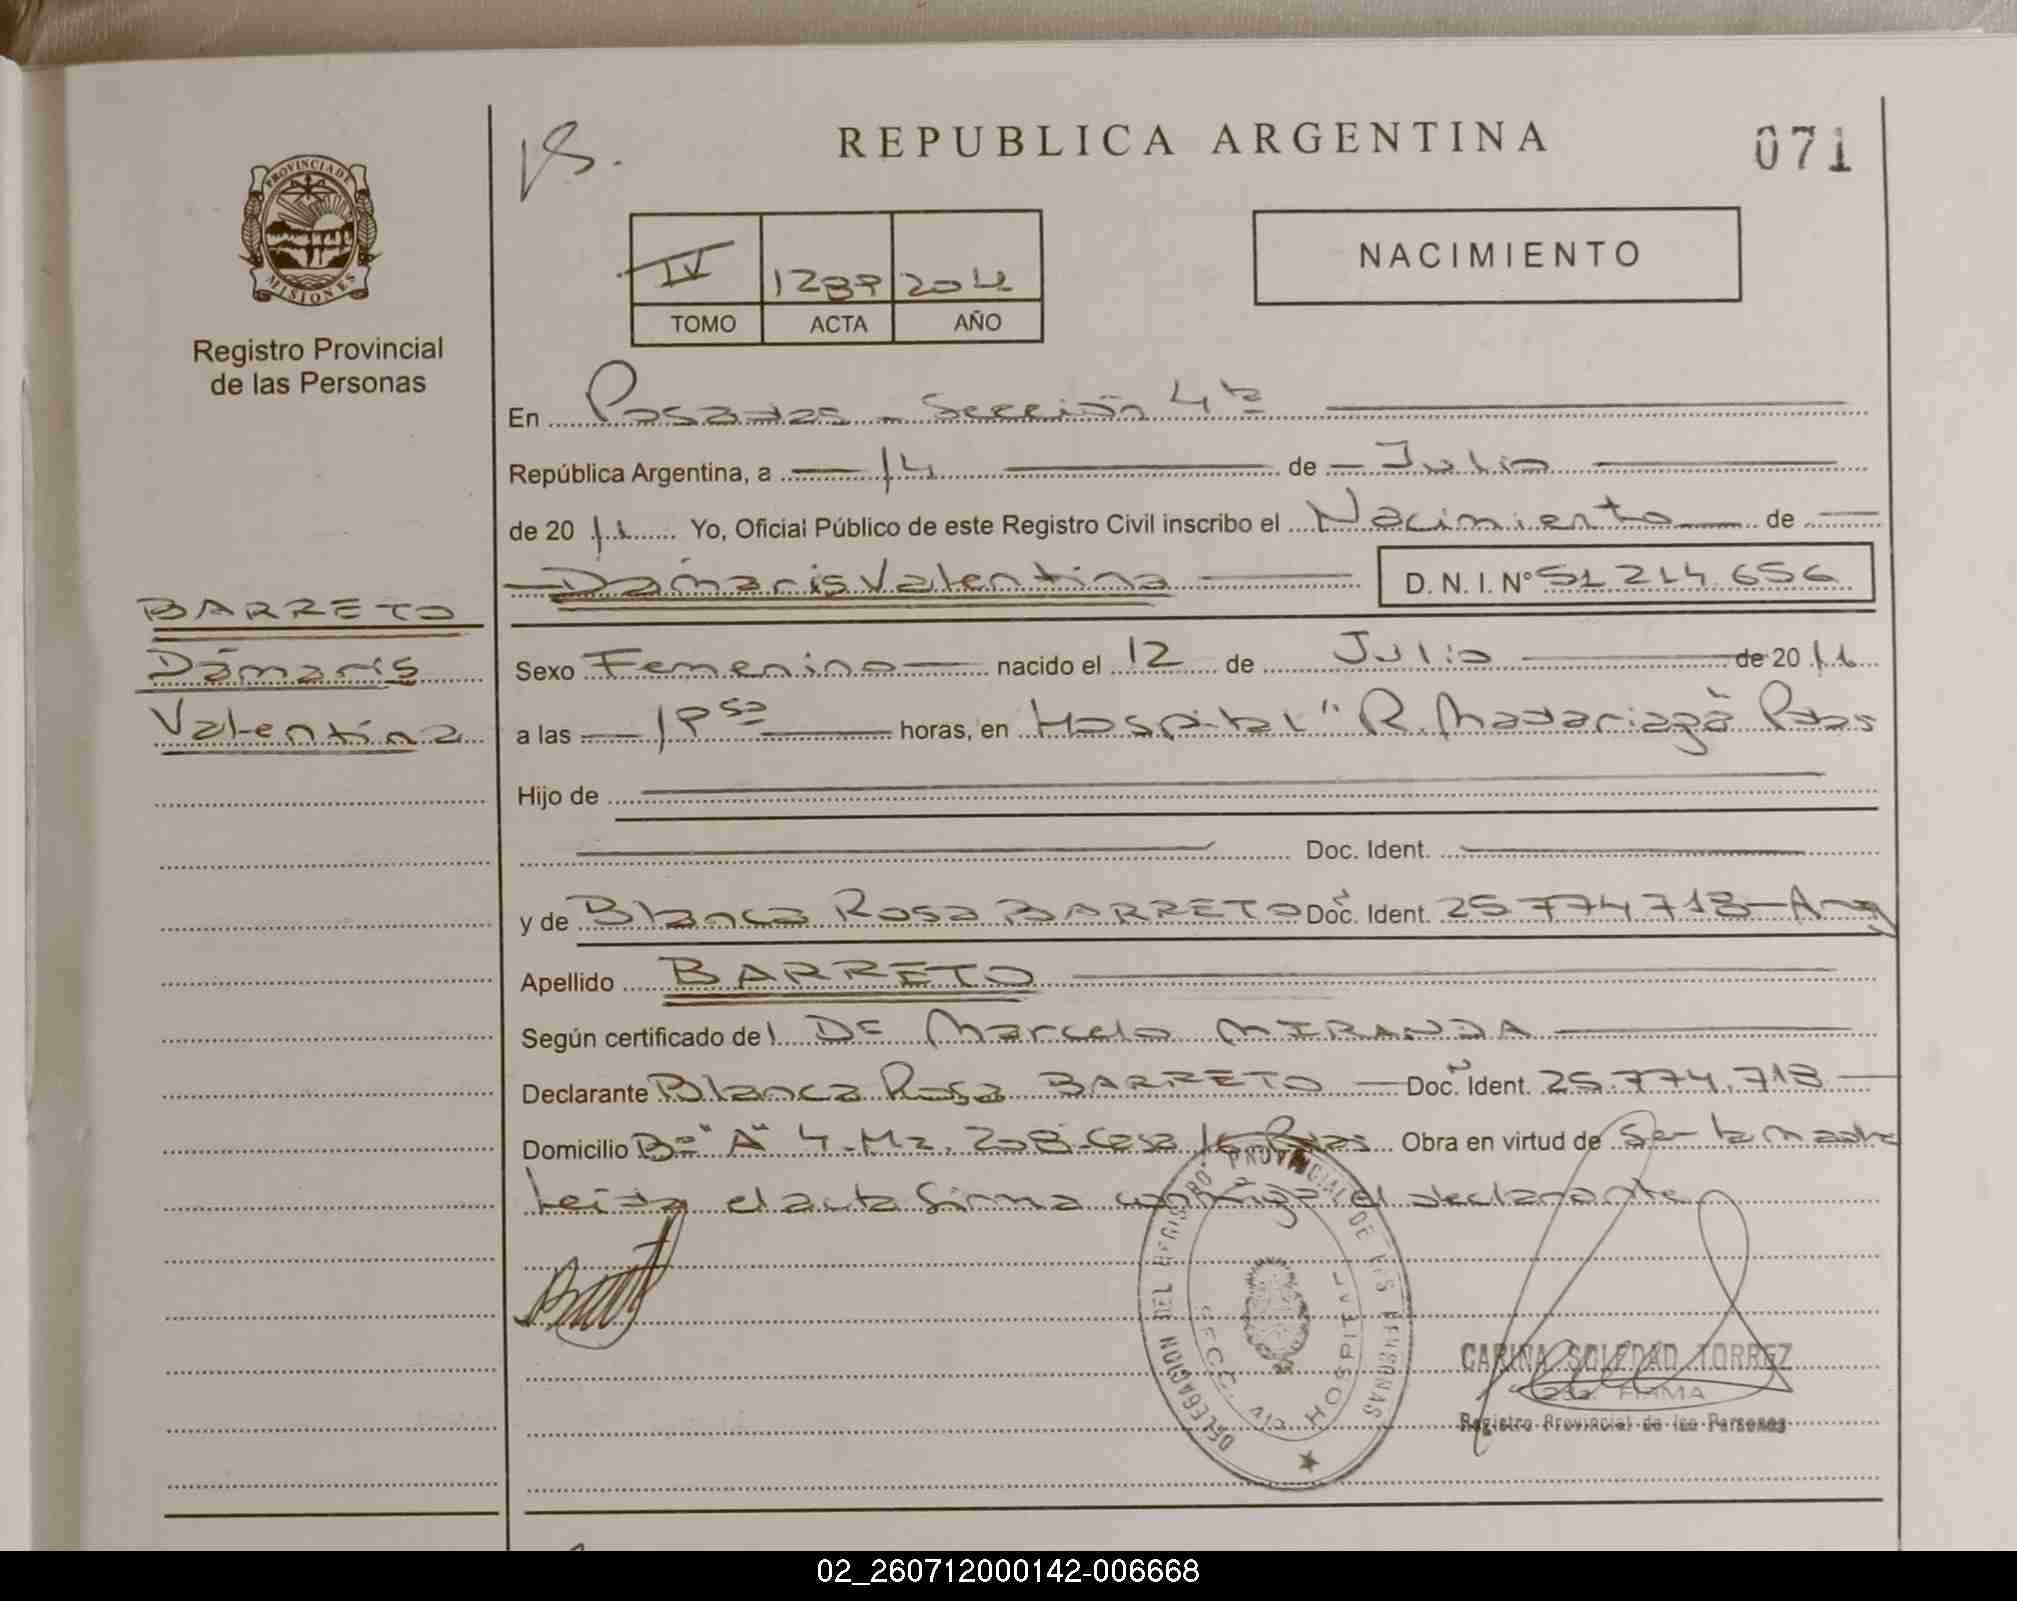 REPUBLICA ARGENTINA
071
PROVINCIA DE
MISIONES
Registro Provincial
de las Personas
IV 2011
TOMO ACTA AÑO
NACIMIENTO
En Posadas - Sección 4ta
República Argentina, a 14 de Julio
de 20 11 Yo, Oficial Público de este Registro Civil inscribo el Nacimiento de
Dámaris Valentina D. N. I. Nº 51.214.656
BARRETO
Dámaris
Valentina
Sexo Femenino nacido el 12 de Julio de 20 11
a las horas, en Hospital "R. Madariaga" Pdas
Hijo de
Doc. Ident.
y de Blanca Rosa BARRETO Doc. Ident. 25.774.718 - Arg
Apellido BARRETO
Según certificado del Dr Marcelo MIRANDA
Declarante Blanca Rosa BARRETO Doc. Ident. 25.774.718
Domicilio Bº "A" 4 - Mz. 208 - Casa Pdas Obra en virtud de Ser la madre
Leída el acta firma conmigo el declarante
DELEGACION DEL REGISTRO PROVINCIAL DE LAS PERSONAS
SECC. 4ta HOSPITAL
CARINA SOLEDAD TORREZ
FIRMA
Registro Provincial de las Personas
02_260712000142-006668